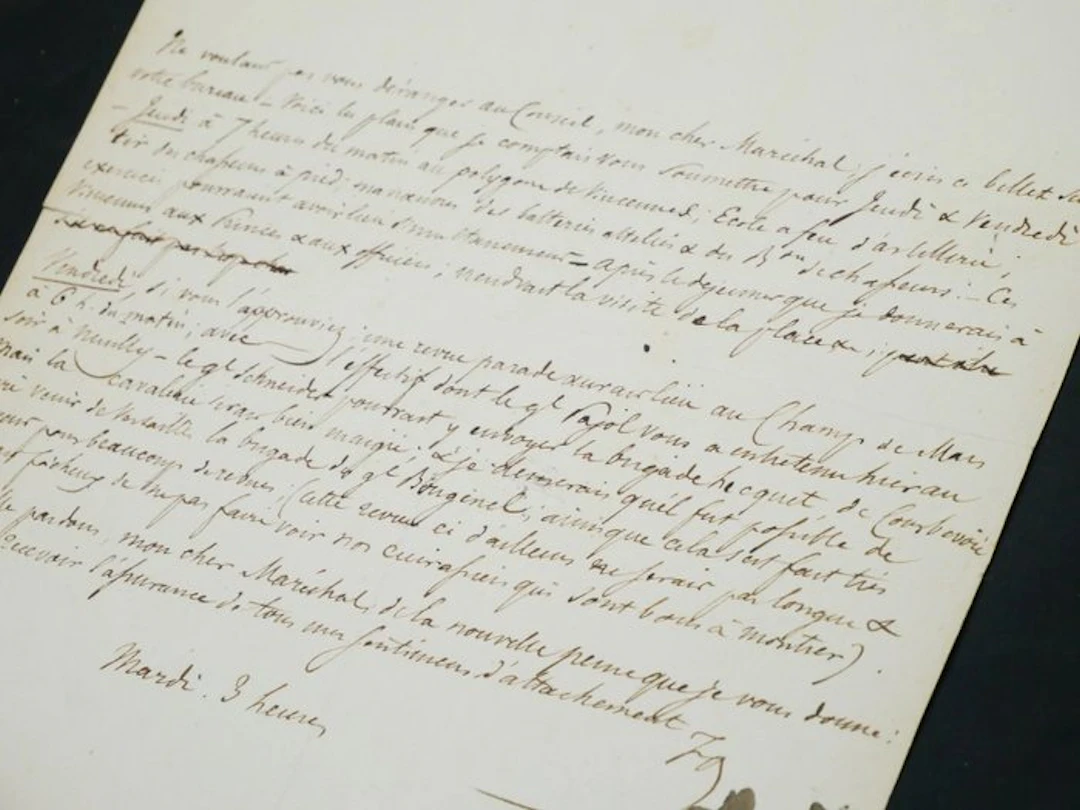 Ne voulant pas vous déranger au Conseil, mon cher Maréchal, j'écris ce billet sur
votre bureau - Voici les plans que je comptais vous soumettre pour Jeudi & Vendredi
- Jeudi à 7 heures du matin au polygone de Vincennes; Ecole à feu d'artillerie;
tir des chasseurs à pied; manœuvres des batteries attelées & des Bons de chasseurs: - Ces
exercices pourraient avoir lieu simultanément = après le déjeuner que je donnerais à
Vincennes aux Princes & aux officiers; viendrait la visite de la place &;
Vendredi, si vous l'approuviez; une revue parade aurait lieu au Champ de Mars
à 6 h. du matin; avec l'effectif dont le gl Pajol vous a entretenu hier au
soir à Neuilly - le gl Schneider pourrait y envoyer la brigade hecquet de Courbevoie
mais la cavalerie serait bien maigre. & je désirerais qu'il fut possible de
venir de Versailles la brigade du gl Bougenel; ainsi que cela s'est fait très
pour beaucoup de revues. (Cette revue ci d'ailleurs ne serait pas longue &
fâcheux de ne pas faire voir nos cuirassiers qui sont bons à montrer).
pardons, mon cher Maréchal, de la nouvelle peine que je vous donne:
recevoir l'assurance de tous mes sentimens d'attachement
Mardi. 3 heures